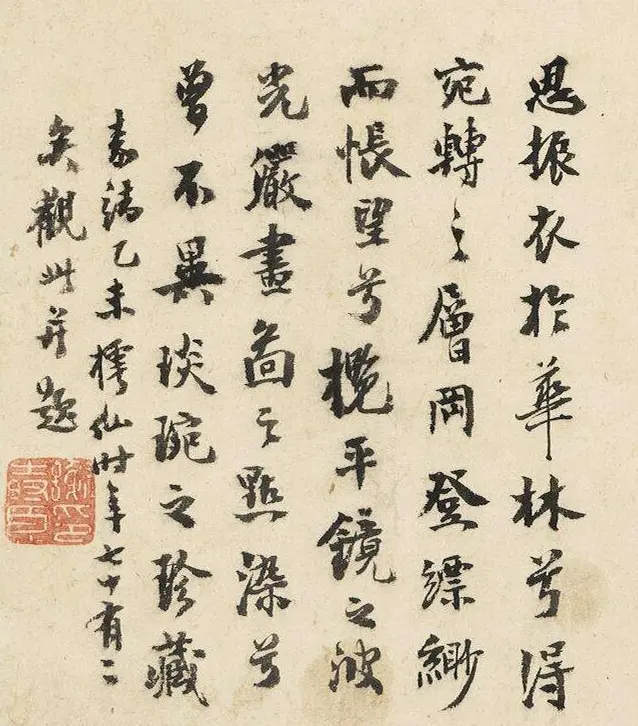 思振衣於華林兮得
宛轉之層岡登縹緲
而悵望兮攬平鏡之波
光嚴畫圖之點染兮
曾不異琰琬之珍藏
嘉靖乙未樗仙時年七十有二
矣觀此并題